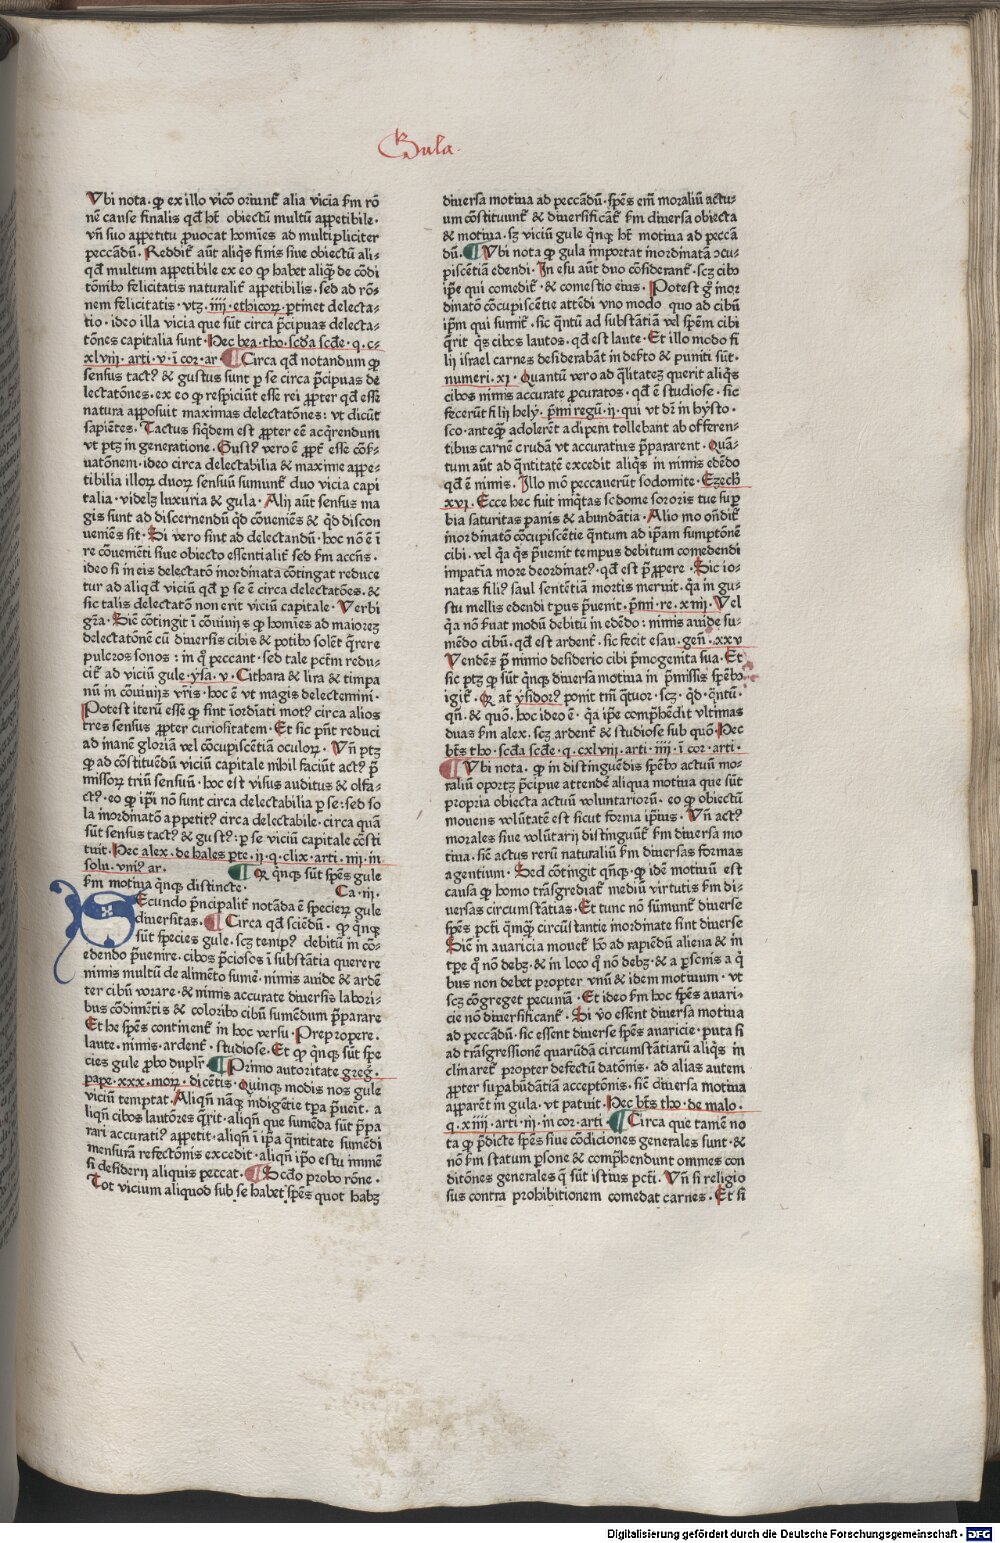 Gula.
Vbi nota · ꝙ ex illo vicō oriunt᷑ alia vicia ẜm rō
nē cause finalis qd̄ hꝫ obiectū multū appetibile ·
vn̄ suo appetitu ꝓuocat homīes ad multipliciter
peccādū. Reddit᷑ aūt aliqͥs finis siue obiectū ali-
qd̄ multum appetibile ex eo ꝙ habet aliqͥꝫ de cōdi
tōnibꝰ felicitatis naturalit᷑ appetibilis · sed ad rō-
nem felicitatis · vtꝫ · iiij · ethicoꝝ · ꝑtinet delecta-
tio · ideo illa vicia que sūt circa p̄cipuas delecta-
tōnes capitalia sunt · Hec bea · tho · scd̄a scd̄e · q · c-
xlviij · arti · v · ī coꝛ · ar ¶ Circa qd̄ notandum ꝙ
sensus tactꝰ & gustus sunt ꝑ se circa p̄cipuas de
lectatōnes · ex eo ꝙ respiciūt esse rei ꝓpter qd̄ esse
natura apposuit maximas delectatōnes: vt dicūt
sapiētes · Tactus siqͥdem est ꝓpter eē acqͥrendum
vt ptꝫ in generatione · Gustꝰ vero ē ꝓpt᷑ esse cōẜ-
uatōnem · ideo circa delectabilia & maxime appe-
tibilia illoꝝ duoꝝ sensuū sumunt᷑ duo vicia capi
talia · videlꝫ luxuria & gula · Alij aūt sensus ma
gis sunt ad discernendū qͥd cōueniēs & qͥd discon
ueniēs sit · Si vero sint ad delectandū · hoc nō ē ī
re cōueniēti siue obiecto essentialit᷑ sed ẜm accn̄s ·
ideo si in eis delectatō inordinata cōtingat reduce
tur ad aliqd̄ viciū qd̄ ꝑ se ē circa delectatōes · &
sic talis delectatō non erit viciū capitale · Verbi
gr̄a · Siē cōtingit ī cōuiuijs ꝙ homīes ad maiorem
delectatōnē cū diuersis cibis & potibꝰ solēt qͣrere
pulcros sonos : in qͦ peccant · sed tale pctm̄ redu-
cit᷑ ad viciū gule · ysa · v · Cithara & lira & timpa
nū in cōuiuijs vr̄is · hoc ē vt magis delectemini ·
Potest iterū esse ꝙ sint īordīati motꝰ circa alios
tres sensus ꝓpter curiositatem · Et sic pn̄t reduci
ad inanē gloriā vel cōcupiscētiā oculoꝝ · Vn̄ ptꝫ
ꝙ ad cōstituēdū viciū capitale nihil faciūt actꝰ p̄
missoꝝ triū sensuū · hoc est visus auditus & olfa-
ctꝰ · eo ꝙ ip̄i nō sunt circa delectabilia ꝑ se : sed so
la inordinatō appetitꝰ circa delectabile · circa quā
sūt sensus tactꝰ & gustꝰ: ꝑ se viciū capitale cōsti
tuit · Hec alex · de hales ꝑte · ij · q · clix · arti · iij · in
solu · vniꝰ ar ·
¶ Qꝛ qͥnqꝫ sūt spēs gule
ẜm motiua qͥnqꝫ distincte · Ca · iij ·
Secundo p̄ncipalit᷑ notāda ē specieꝝ gule
diuersitas · ¶ Circa qd̄ sciēdū · ꝙ qͥnqꝫ
sūt species gule · scꝫ tempꝰ debitū in cō-
edendo p̄uenire · cibos p̄ciosos ī substātia querere
nimis multū de alimēto sumē · nimis auide & ardē
ter cibū vorare · & nimis accurate diuersis labori-
bus cōdimētis & coloribꝰ cibū sumēdum p̄parare
Et he spēs continent᷑ in hoc versu · Prepropere ·
laute · nimis · ardent᷑ · studiose · Et ꝙ qͥnqꝫ sūt spe
cies gule ꝓbo duplr̄ · ¶ Primo autoritate greg ·
pape · xxx · moꝝ · dicētis · Quinqꝫ modis nos gule
viciū temptat · Aliqn̄ nāqꝫ indigētie tꝑa p̄ueit · a
liqn̄ cibos lautōres qͣrit · aliqn̄ que sumēda sūt p̄pa
rari accuratiꝰ appetit · aliqn̄ ī ip̄a qͣntitate sumēdi
mensurā refectōnis excedit · aliqn̄ ip̄o estu immē
si desiderij aliquis peccat · ¶ Scd̄o probo rōne ·
Tot vicium aliquod sub se habet spēs quot habꝫ
diuersa motiua ad peccādū · spēs em̄ moraliū actu-
um cōstituunt᷑ & diuersificāt᷑ ẜm diuersa obiecta
& motiua · sꝫ viciū gule qͥnqꝫ hꝫ motiua ad peccā
dū · ¶ Vbi nota ꝙ gula importat inordinatā ↄcu-
piscētiam edendi · In esu aūt duo cōsiderant᷑ · scꝫ cibꝰ
ip̄e qui comedit᷑ · & comestio eius · Potest gͦ inor
dinatō cōcupiscētie attēdi vno modo quo ad cibū
ip̄m qui sumit᷑ · sic qͣntū ad substātiā vel spēm cibi
qͣrit qͥs cibos lautos · qd̄ est laute · Et illo modo fi
lij israel carnes desiderabāt in deẜto & puniti sūt ·
numeri · xj · Quantū vero ad qͣlitateꝫ querit aliqͥs
cibos nimis accurate ꝓcuratos · qd̄ ē studiose · sic
fecerūt filij hely · p̄mi regū · ij · qui vt dr̄ in hysto ·
sco · anteqͣꝫ adolerēt adipem tollebant ab offeren-
tibus carnē crudā vt accuratius p̄pararent · Quā-
tum aūt ad qͣntitatē excedit aliqͥs in nimis edēdo
qd̄ ē nimis · Illo mō peccauerūt sodomite · Ezech̄
xvj · Ecce hec fuit iniqͥtas sodome sororis tue suꝑ
bia saturitas panis & abundātia · Alio mo on̄dit᷑
inordinatō cōcupiscētie qͣntum ad ip̄am sumptōnē
cibi · vel qꝛ qͥs p̄uenit tempus debitum comedendi
impatīa more deordinatꝰ · qd̄ est p̄ꝓpere · Sic io-
natas filiꝰ saul sententiā mortis meruit · qꝛ in gu-
stu mellis edendi tꝑus p̄uenit · p̄mi · re · xiiij · Vel
qꝛ nō ẜuat modū debitū in edēdo : nimis auide su-
mēdo cibū · qd̄ est ardent᷑ · sic fecit esau · gen̄ · xxv
Vendēs p̄ nimio desiderio cibi p̄mogenita sua · Et
sic ptꝫ ꝙ sūt qͥnqꝫ diuersa motiua in p̄missis spēbꝰ
igit᷑ · Qꝛ aūt ysidorꝰ ponit tm̄ qͣtuor · scꝫ · qͥd · qͣntū ·
qn̄ · & quō · hoc ideo ē · qꝛ ip̄e comp̄hēdit vltimas
duas ẜm alex · scꝫ ardent᷑ & studiose sub quō · Hec
bt̄s tho · scd̄a scd̄e · q · cxlviij · arti · iiij · ī coꝛ · arti ·
¶ Vbi nota · ꝙ in distinguēdis spēbꝰ actuū mo-
raliū oportꝫ p̄cipue attendē aliqua motiua que sūt
propria obiecta actuū voluntarioꝝ · eo ꝙ obiectū
mouens volūtatē est sicut forma ip̄ius · Vn̄ actꝰ
morales siue volūtarij distinguūt᷑ ẜm diuersa mo
tiua · siē actus rerū naturaliū ẜm diuersas formas
agentium · Sed cōtingit qn̄qꝫ · ꝙ idē motiuū est
causa ꝙ homo trāsgrediat᷑ mediū virtutis ẜm di-
uersas circumstātias · Et tunc nō sūmunt᷑ diuerse
spēs pcti qͣmqͣꝫ circūstantie inordinate sint diuerse
Siē in auaricia mouet᷑ hō ad rapiēdū aliena & in
tꝑe qͦ nō debꝫ · & in loco qͦ nō debꝫ · & a ꝑsonis a qͥ
bus non debet propter vnū & idem motiuum · vt
scꝫ cōgreget pecuniā · Et ideo ẜm hoc spēs auari-
cie nō diuersificant᷑ · Si vo essent diuersa motiua
ad peccādū · sic essent diuerse spēs auaricie · puta si
ad trāsgressionē quarūdā circumstātiarū aliqͥs in
clinaret᷑ propter defectū datōnis · ad alias autem
ꝓpter suꝑabūdātiā acceptōnis · siē diuersa motiua
apparēt in gula · vt patuit · Hec bt̄s tho · de malo ·
q · xiiij · arti · iij · in coꝛ · arti ¶ Circa que tamē no
ta ꝙ p̄dicte spēs siue cōdiciones generales sunt · &
nō ẜm statum ꝑsone & comp̄hendunt omnes con
ditōnes generales q̄ sūt istius pcti · Vn̄ si religio
sus contra prohibitionem comedat carnes · Et si
Digitalisierung gefördert durch die Deutsche Forschungsgemeinschaft - DFG